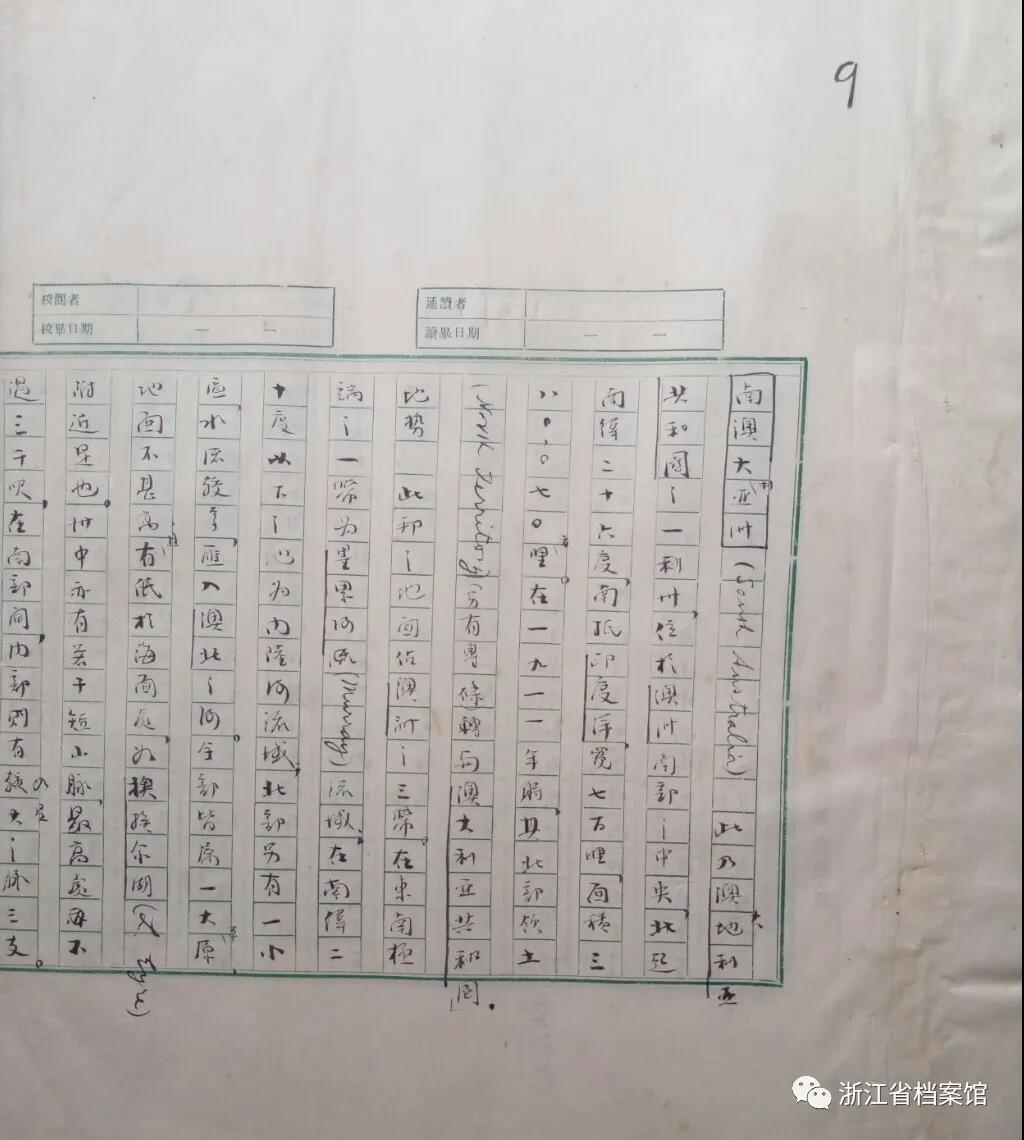 9
通讀者
讀畢日期 — —
校閱者
校畢日期 — —
南澳大亚州 (South Australia) 此乃澳地利亚
共和國之一利州位於澳洲南部之中央北起
南緯二十六度南抵印度洋寬七百哩面積三
八〇,〇七〇哩在一九一一年時其北部領土
(North Territory)(另有專條)轉与澳大利亚共和国
地勢 此邦之地面佔澳洲之三帶在東南極
端之一帶为墨累河流(Murray)流域在南緯二
十度以下之地为内陸河流域北部另有一小
水流較多匯入澳北之河全部皆為一大原
地面不甚高有低於海面處如挨挨尔湖(Eyre)
附近是也州中亦有若干短小山脈最高處每不
過三千呎在南部间内部則有較大之脉三支